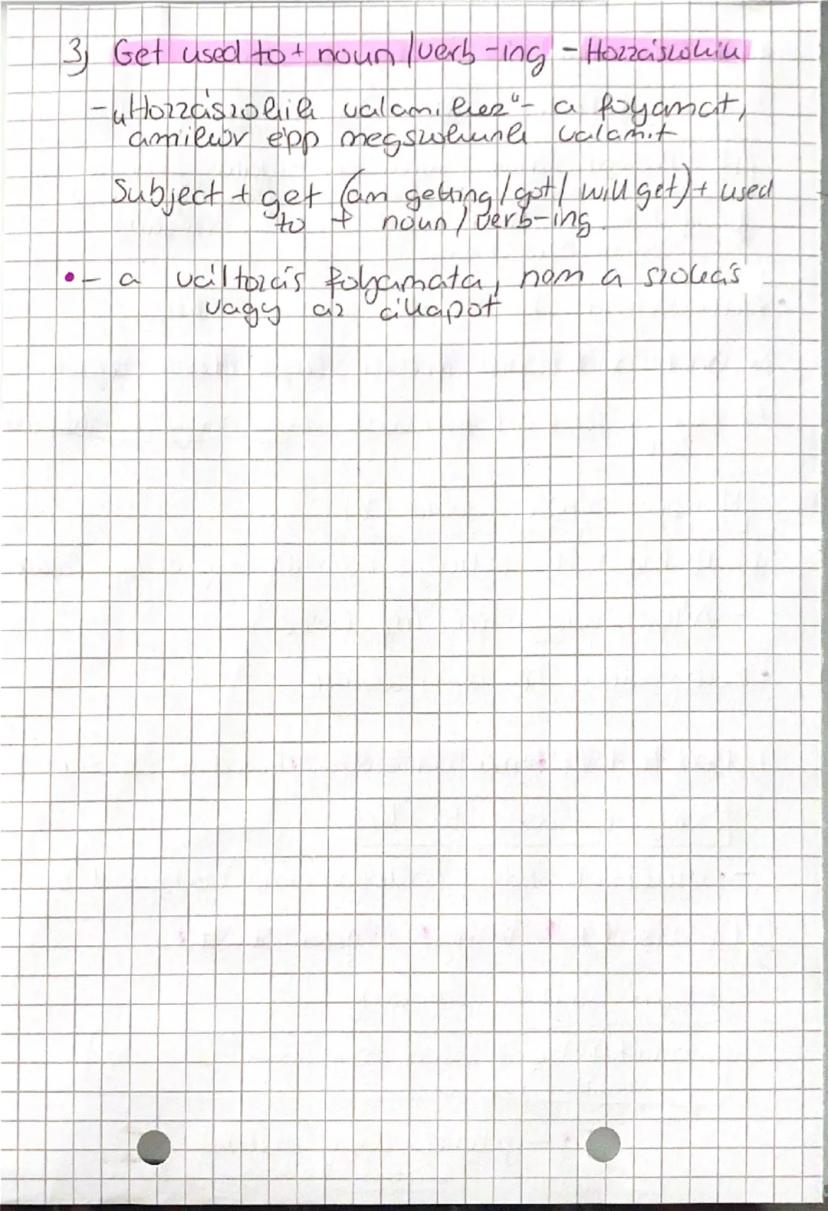 3, Get used to + noun /verb -ing - Hozzászokik
- „Hozzászokik valamihez" - a folyamat,
amikor épp megszokunk valamit
Subject + get (am getting/got/ will get) + used
to + noun / verb-ing.
• - a változás folyamata, nem a szokás
vagy az állapot